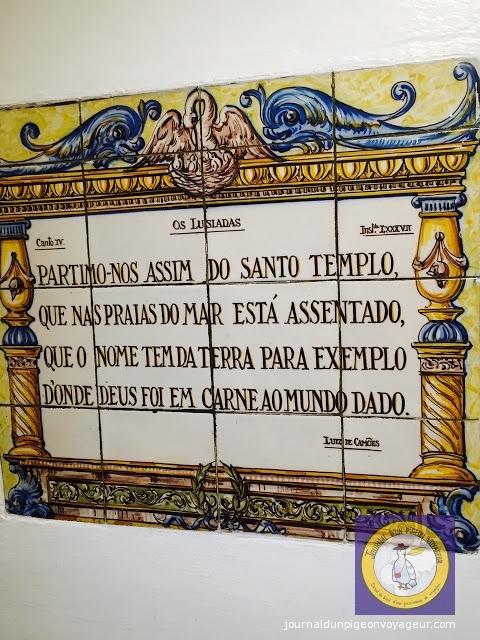 OS LUSIADAS
Canto IV.
PARTIMO-NOS ASSIM DO SANTO TEMPLO,
QUE NAS PRAIAS DO MAR ESTÁ ASSENTADO,
QUE O NOME TEM DA TERRA PARA EXEMPLO
D'ONDE DEUS FOI EM CARNE AO MUNDO DADO.
LUIZ DE CAMÕES
JOURNAL D'UN PIGEON VOYAGEUR
journaldunpigeonvoyageur.com